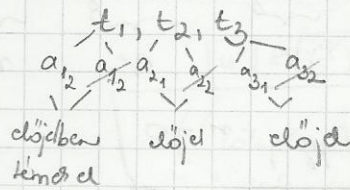 t₁, t₂, t₃
a₁₂ a₁₂ a₂₁ a₂₂ a₃₁ a₃₂
előjelben előjel előjel